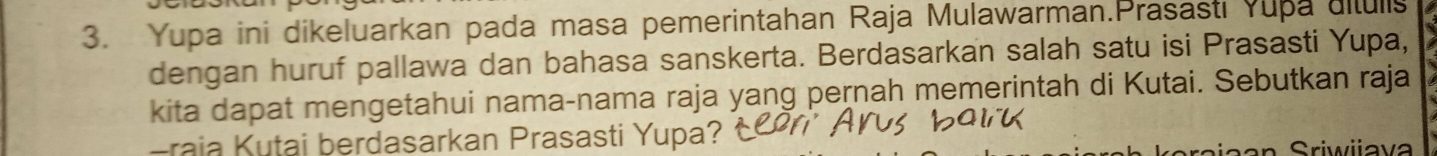 3. Yupa ini dikeluarkan pada masa pemerintahan Raja Mulawarman.Prasasti Yupa ditulis
dengan huruf pallawa dan bahasa sanskerta. Berdasarkan salah satu isi Prasasti Yupa,
kita dapat mengetahui nama-nama raja yang pernah memerintah di Kutai. Sebutkan raja
–raja Kutai berdasarkan Prasasti Yupa? teori Arus balik
kerajaan Sriwijaya